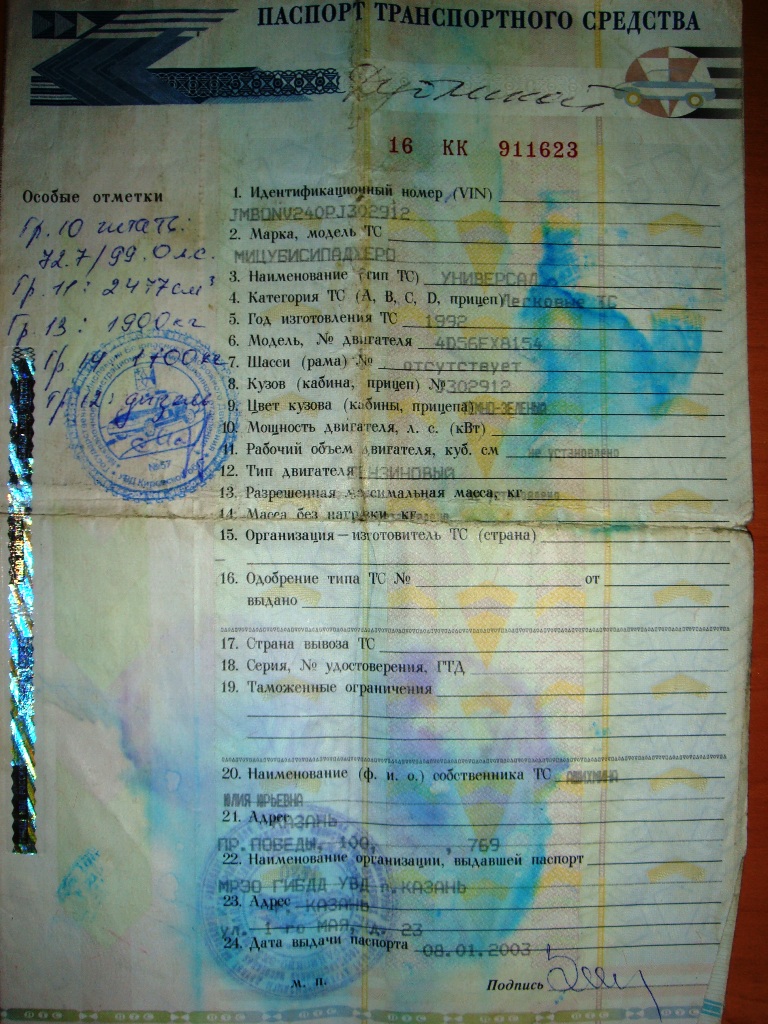 ПАСПОРТ ТРАНСПОРТНОГО СРЕДСТВА
16 КК 911623
Особые отметки
Гр. 10 читать:
72.7/99.0 л.с.
Гр. 11: 2477 см³
Гр. 13: 1900 кг
Гр. 14: 1700 кг
Гр. 12: дизель
№57
1. Идентификационный номер (VIN)
JMB0NV240PJ302912
2. Марка, модель ТС
МИЦУБИСИПАДЖЕРО
3. Наименование (тип ТС) УНИВЕРСАЛ
4. Категория ТС (A, B, C, D, прицеп) Легковые ТС
5. Год изготовления ТС 1992
6. Модель, № двигателя 4D56EX8154
7. Шасси (рама) № отсутствует
8. Кузов (кабина, прицеп) № J302912
9. Цвет кузова (кабины, прицепа) ТЕМНО-ЗЕЛЕНЫЙ
10. Мощность двигателя, л. с. (кВт)
11. Рабочий объем двигателя, куб. см не установлено
12. Тип двигателя БЕНЗИНОВЫЙ
13. Разрешенная максимальная масса, кг
14. Масса без нагрузки, кг
15. Организация – изготовитель ТС (страна)
16. Одобрение типа ТС № от
выдано
17. Страна вывоза ТС
18. Серия, № удостоверения, ГТД
19. Таможенные ограничения
20. Наименование (ф. и. о.) собственника ТС
ЮЛИЯ ЮРЬЕВНА
21. Адрес КАЗАНЬ
ПР.ПОБЕДЫ, 100, , 769
22. Наименование организации, выдавшей паспорт
МРЭО ГИБДД УВД г.КАЗАНЬ
23. Адрес КАЗАНЬ
ул. 1-го МАЯ, д. 23
24. Дата выдачи паспорта 08.01.2003
м. п. Подпись